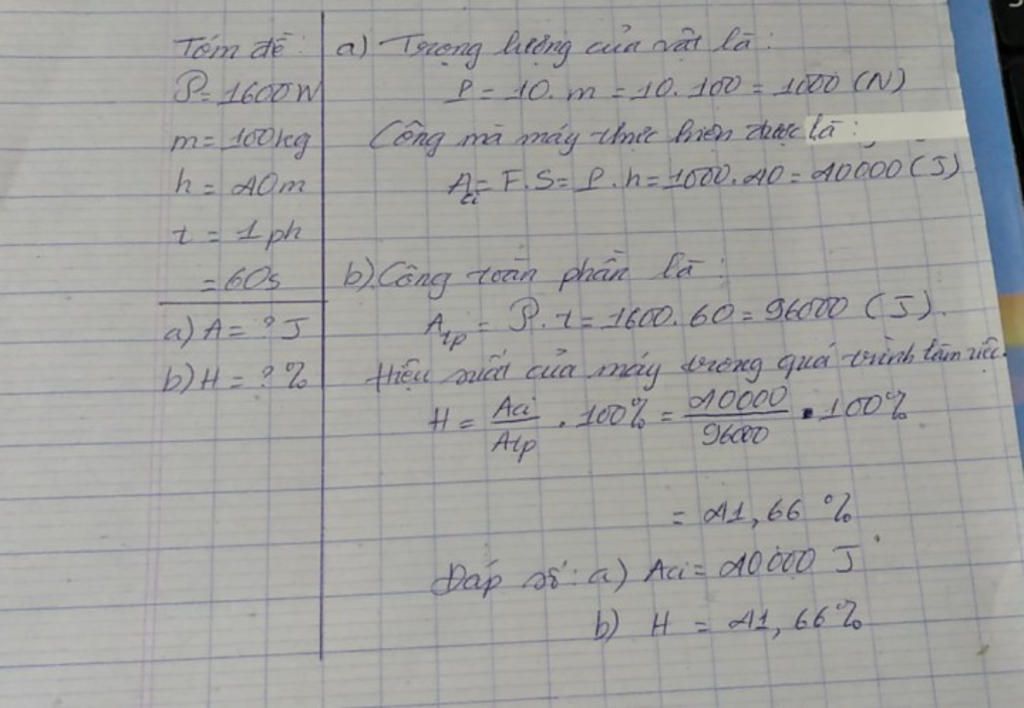 Tóm đề:
P = 1600W
m = 100kg
h = 40m
t = 1ph
= 60s
a) A = ? J
b) H = ? %
a) Trọng lượng của vật là:
P = 10. m = 10. 100 = 1000 (N)
Công mà máy thực hiện được là:
Aci = F.S = P.h = 1000.40 = 40000 (J)
b) Công toàn phần là:
Atp = P.t = 1600.60 = 96000 (J).
Hiệu suất của máy trong quá trình làm việc.
H = Aci / Atp . 100% = 40000 / 96000 . 100%
= 41,66 %
Đáp số: a) Aci = 40000 J
b) H = 41,66%